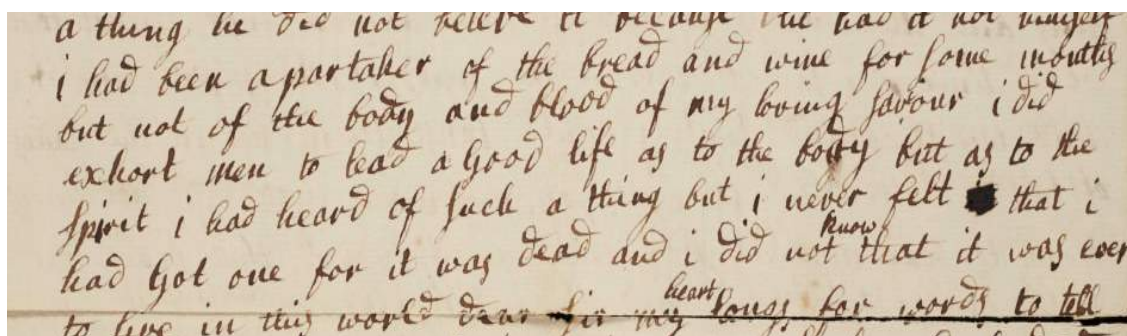 a thing he did not beleve it because he had it not himself
i had been a partaker of the bread and wine for some months
but not of the body and blood of my loving saviour i did
exhort men to lead a Good life as to the body but as to the
spirit i had heard of such a thing but i never felt that i
know
had Got one for it was dead and i did not that it was ever
heart
to live in this world dear sir my longs for words to tell